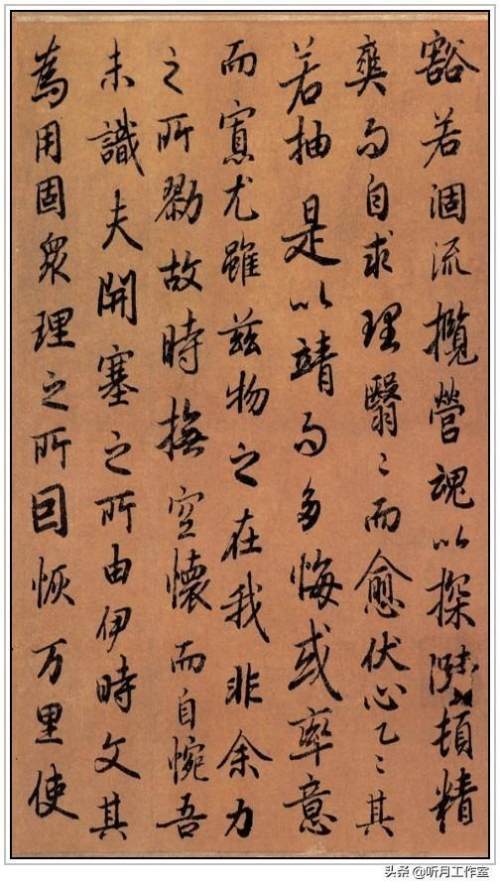 豁若涸流攬營魂以探賾頓精
爽於自求理翳々而愈伏心乙々其
若抽是以靖於多悔或率意
而寡尤雖茲物之在我非余力
之所勠故時撫空懷而自惋吾
未識夫開塞之所由伊時文其
為用固眾理之所因恢万里使
头条 @听月工作室